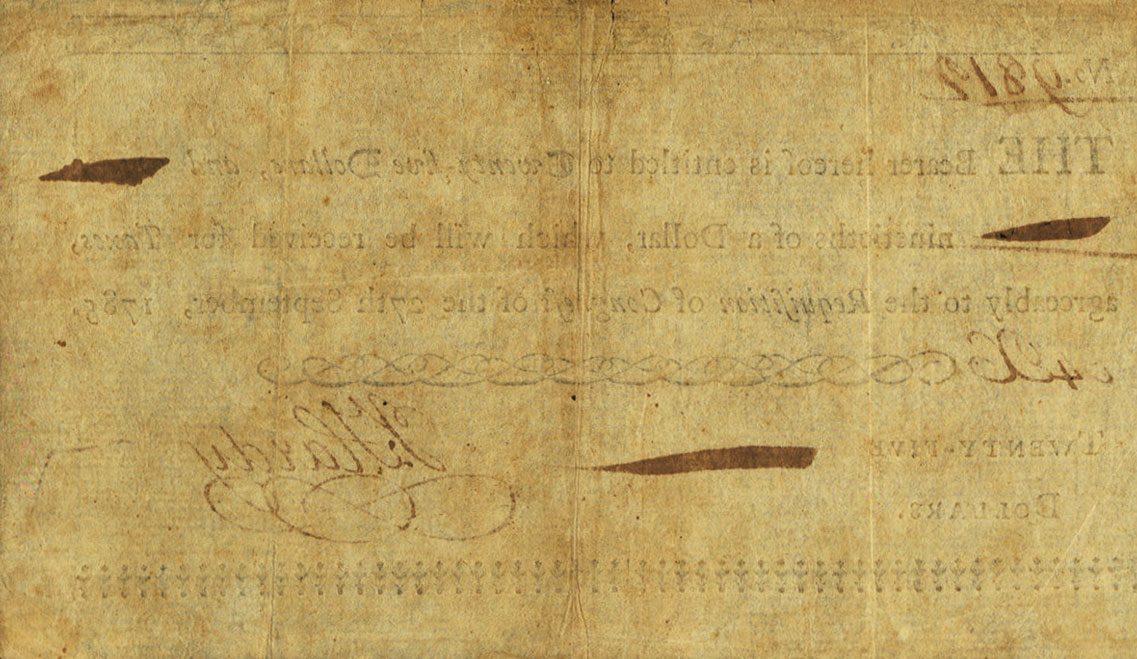 No. 9812
THE Bearer hereof is entitled to Twenty-five Dollars, and
ninetieths of a Dollar, which will be received for Taxes,
agreeably to the Requisition of Congress of the 27th September, 1785.
TWENTY-FIVE
DOLLARS.